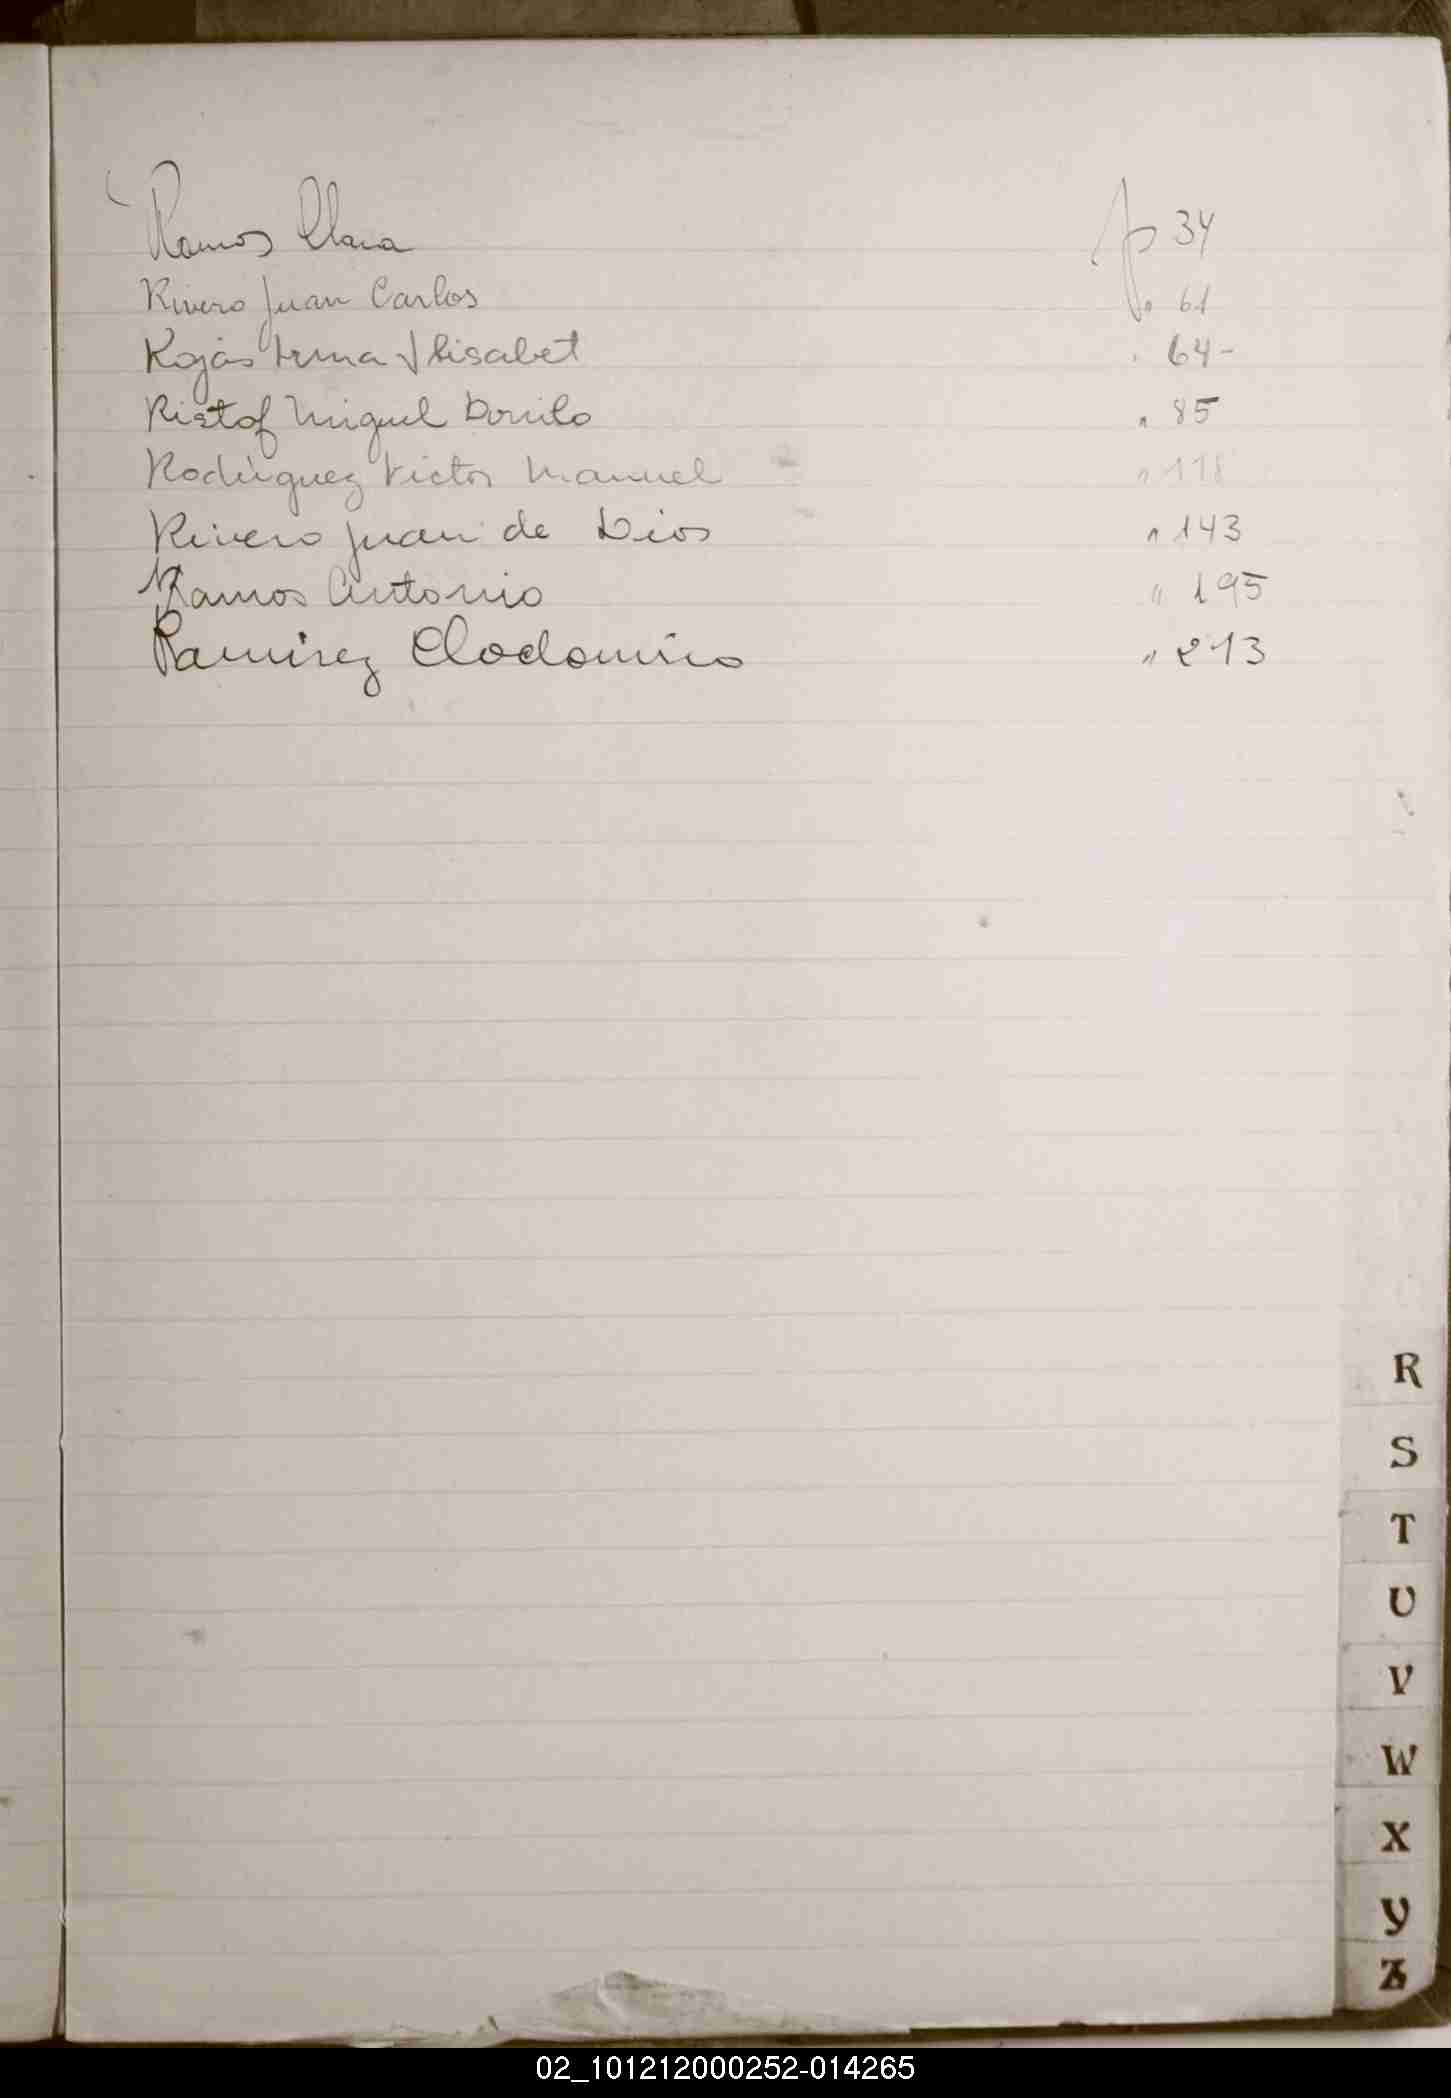 Ramos Clara fo 34
Rivero Juan Carlos " 61
Rojas Irma Elisabet " 64-
Ristof Miguel Danilo " 85
Rodriguez Victor Manuel " 118
Rivero Juan de Dios " 143
Ramos Antonio " 195
Ramirez Clodomiro " 213
R
S
T
U
V
W
X
Y
Z
02_101212000252-014265